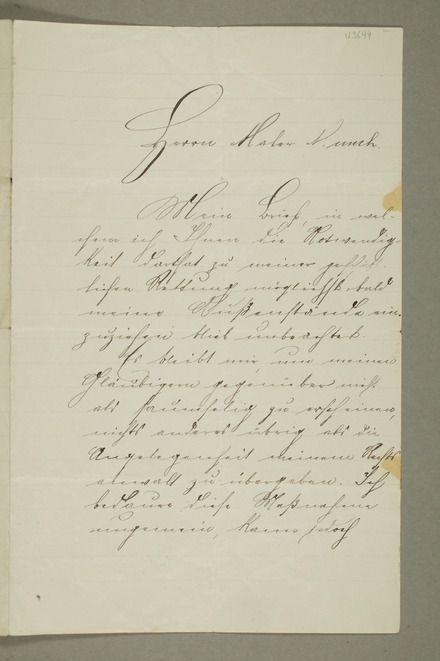 113649
Herrn Maler Munch.
Mein Brief, in wel-
chem ich Ihnen die Notwendig-
keit darthat zu meiner
lichen Rettung möglichst bald
meine Außenstände ein-
zuziehen blieb unbeachtet.
Es bleibt mir, um meinen
Gläubigern gegenüber nicht
als saumselig zu erscheinen,
nichts anderes übrig als die
Angelegenheit meinem Rechts
anwalt zu übergeben. Ich
bedaure diese Maßnahme
ungemein, kann jedoch